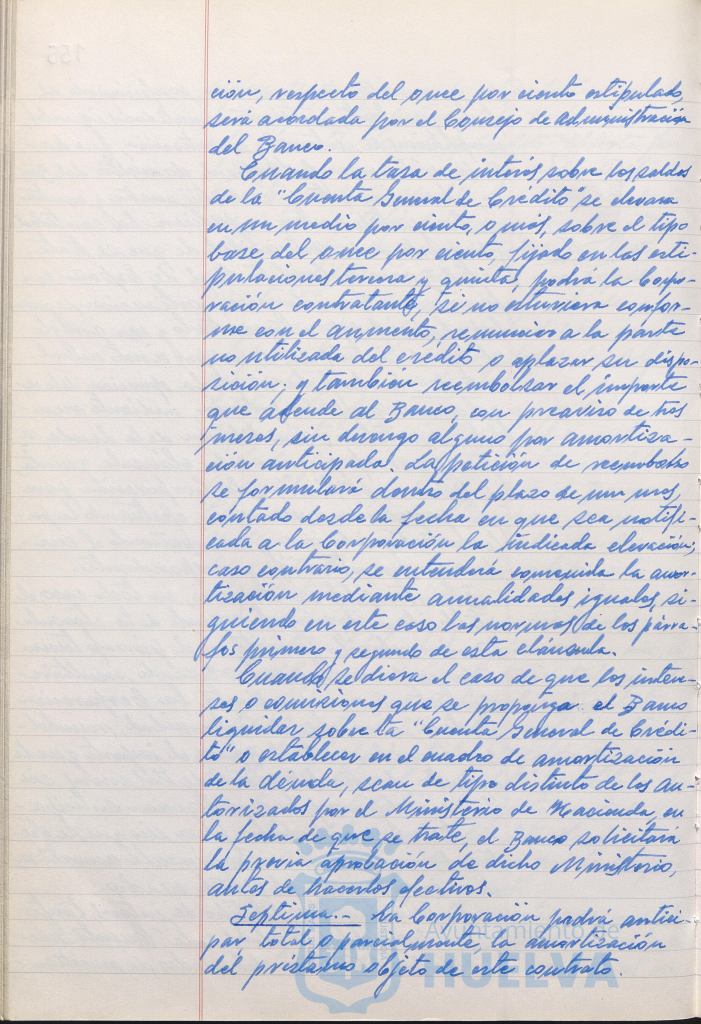 ción, respecto del once por ciento estipulado,
será acordada por el Consejo de Administración
del Banco.
Cuando la tasa de interés sobre los saldos
de la "Cuenta General de Crédito" se elevara
en un medio por ciento, o más, sobre el tipo
base del once por ciento, fijado en las esti-
pulaciones tercera y quinta, podrá la Corpo-
ración contratante, si no estuviera confor-
me con el aumento, renunciar a la parte
no utilizada del crédito o aplazar su dispo-
sición; y también reembolsar el importe
que adeude al Banco, con preaviso de tres
meses, sin devengo alguno por amortiza-
ción anticipada. La petición de reembolso
se formulará dentro del plazo de un mes,
contado desde la fecha en que sea notifi-
cada a la Corporación la indicada elevación;
caso contrario, se entenderá convenida la amor-
tización mediante anualidades iguales, si-
guiendo en este caso las normas de los párra-
fos primero y segundo de esta cláusula.
Cuando se diera el caso de que los intere-
ses o comisiones que se proponga el Banco
liquidar sobre la "Cuenta General de Crédi-
to" o establecer en el cuadro de amortización
de la deuda, sean de tipo distinto de los au-
torizados por el Ministerio de Hacienda, en
la fecha de que se trate, el Banco solicitará
la previa aprobación de dicho Ministerio,
antes de hacerlos efectivos.
Septima.- La Corporación podrá antici-
par total o parcialmente la amortización
del préstamo objeto de este contrato.
Ayuntamiento de
HUELVA
155